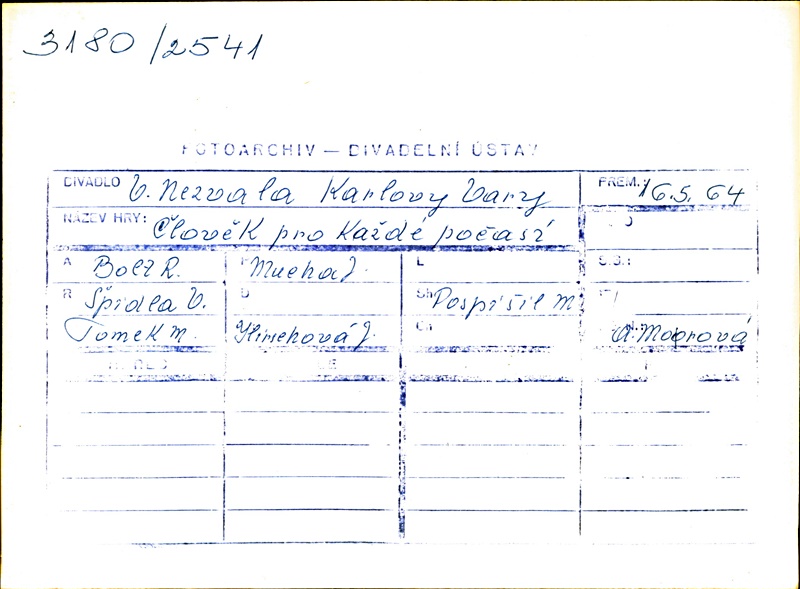 3180/2541
FOTOARCHIV — DIVADELNÍ ÚSTAV
DIVADLO V. Nezvala Karlovy Vary PREM.: 16.5.64
NÁZEV HRY: Člověk pro každé počasí
A Bolt R. P Mucha J. L S.S.:
R Špidla V. D Sh Pospíšil M
Tomek M. J. Ch N.: A. Moorová